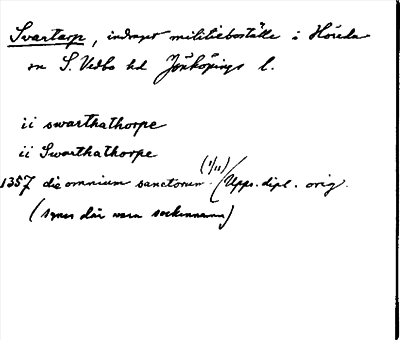 Svartarp, indraget militieboställe i Höreda
sn S. Vedbo hd Jönköpings l.
ii swarthathorpe
ii Swarthathorpe
1357 die omnium sanctorum (1/11) / Upps. dipl. orig.
(synes där vara sockennamn)